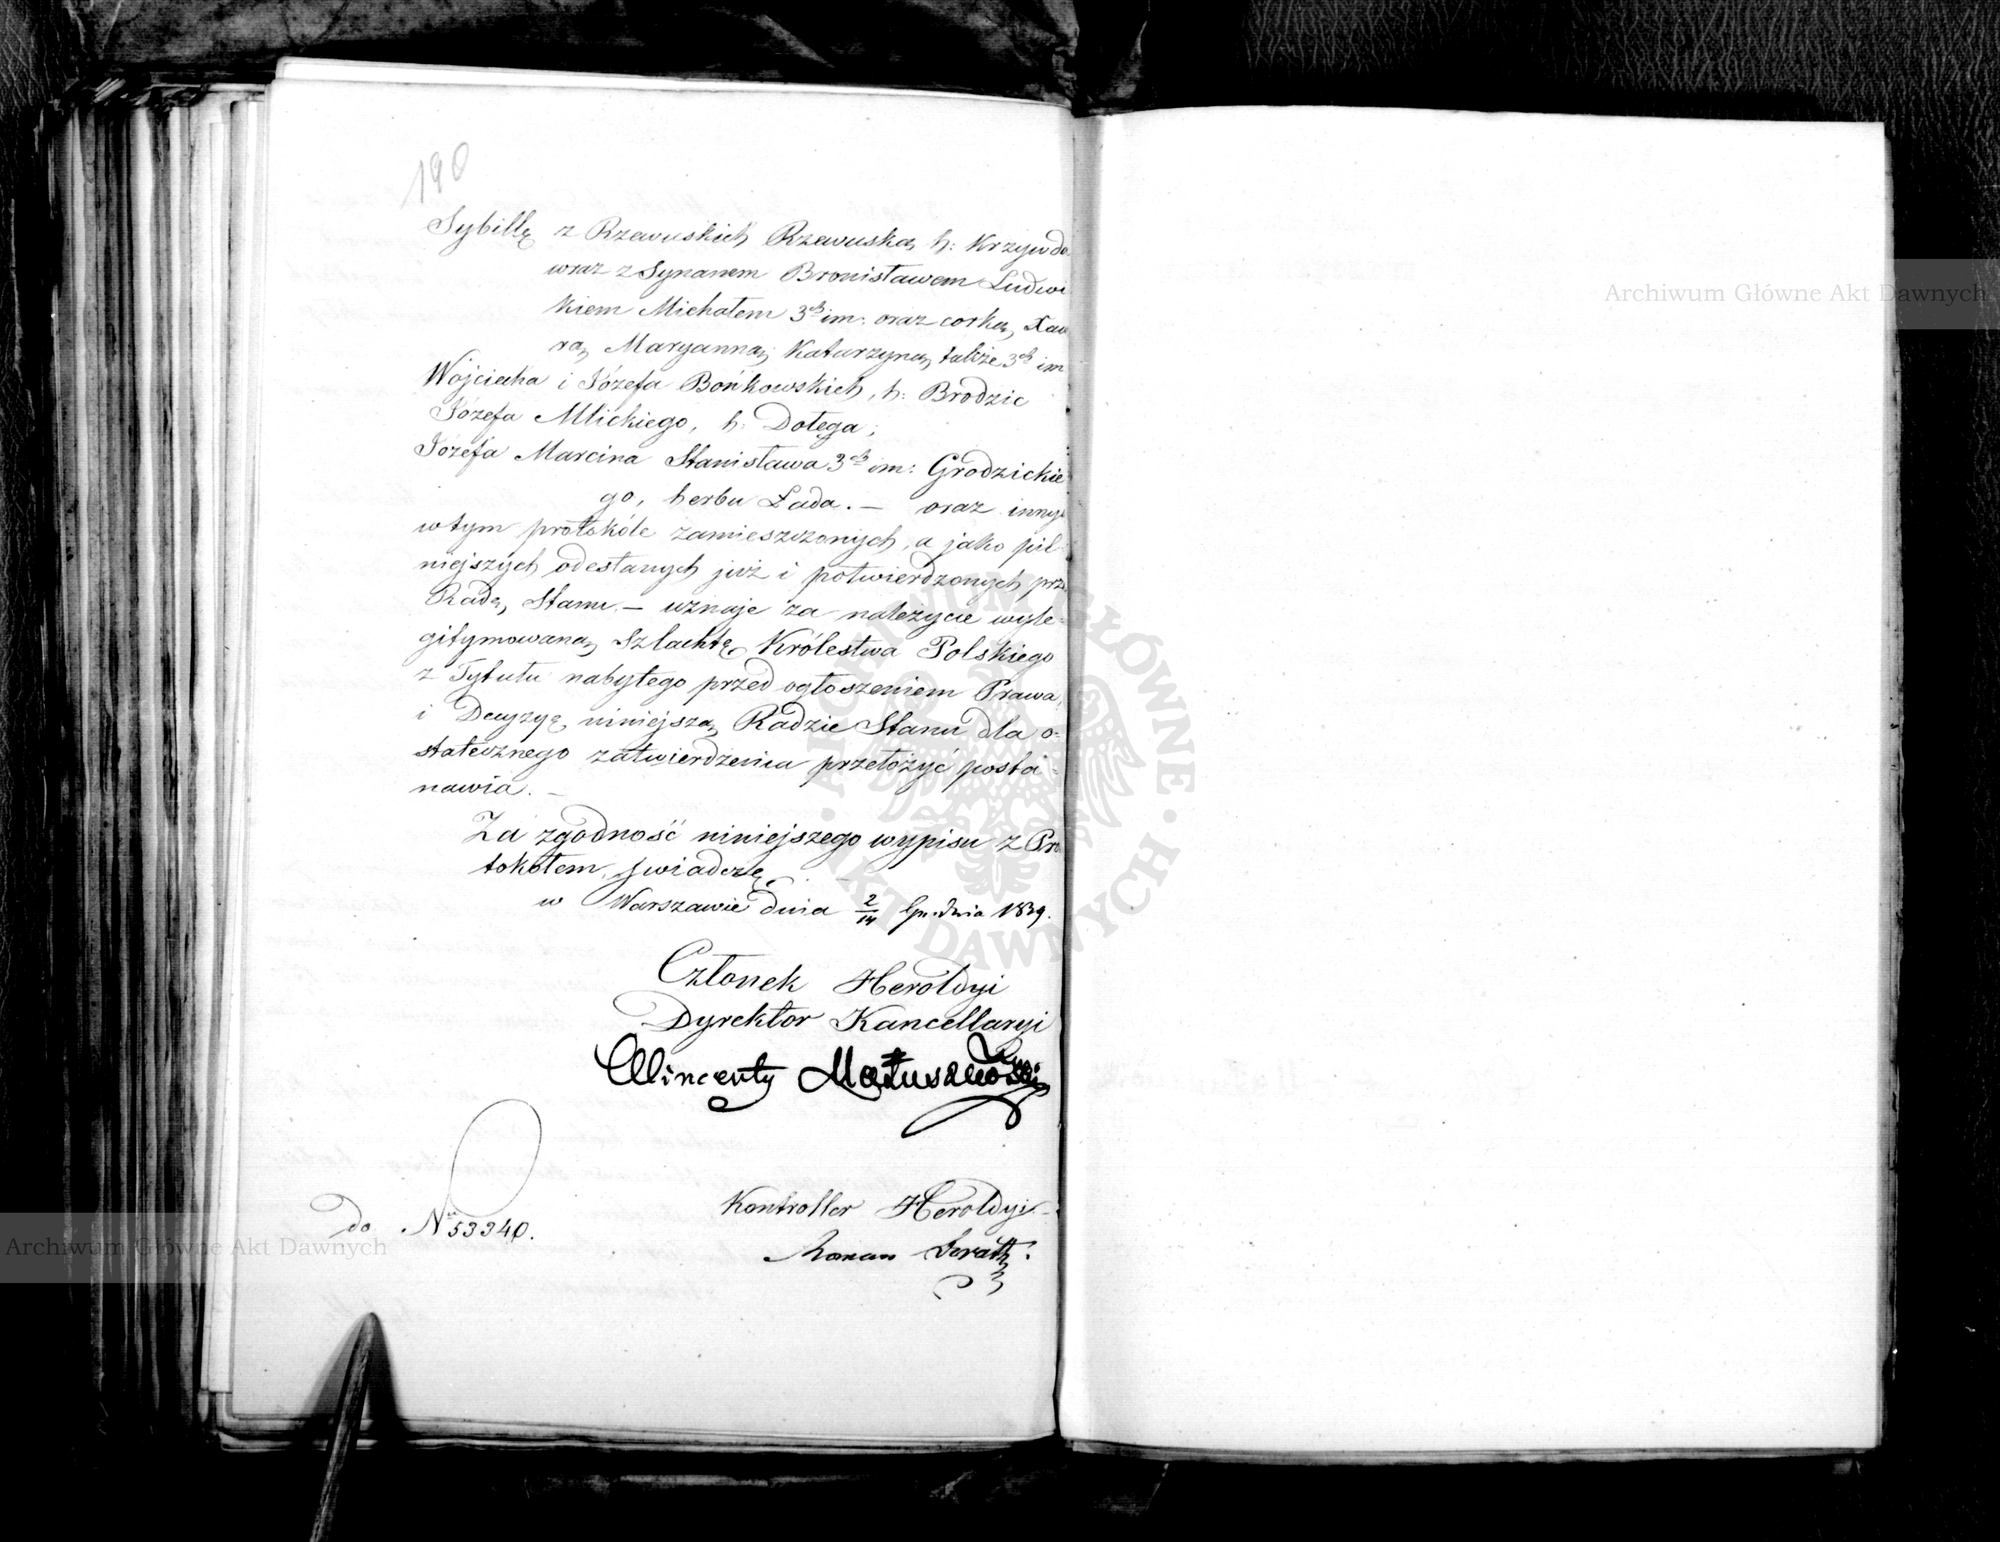 190
Sybillę z Rzewuskich Rzewuską h: Krzywda
wraz z Synanem Bronisławem Ludwi
kiem Michałem 3ch im: oraz corką, Xawe
rą, Maryanną, Katarzyną, także 3ch im
Wojciecha i Józefa Bońkowskich, h: Brodzic
Józefa Mlickiego, h: Dołęga;
Józefa Marcina Stanisława 3ch im: Grodzickie
go, herbu Łada. — oraz innych
w tym protokóle zamieszczonych, a jako pil-
niejszych odesłanych już i potwierdzonych prze
Radę Stanu — uznaje za należycie wyle-
gitymowaną Szlachtę Królestwa Polskiego
z Tytułu nabytego przed ogłoszeniem Prawa,
i Decyzyę niniejszą Radzie Stanu dla o-
statecznego zatwierdzenia przełożyć posta-
nawia. —
Za zgodność niniejszego wypisu z Pro
tokołem, świadczę. —
w Warszawie dnia 2/14 Grudnia 1839.
Członek Heroldyi
Dyrektor Kancellaryi
Wincenty Matuszewski
Kontroller Heroldyi
do Nu 53340.
Archiwum Główne Akt Dawnych
Archiwum Główne Akt Dawnych
ARCHIWUM GŁÓWNE · AKT DAWNYCH ·